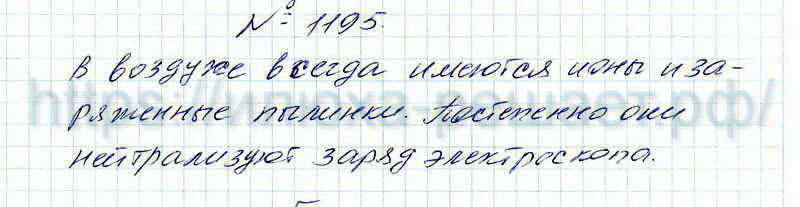 № 1195.
В воздухе всегда имеются ионы и за-
ряженные пылинки. Постепенно они
нейтрализуют заряд электроскопа.